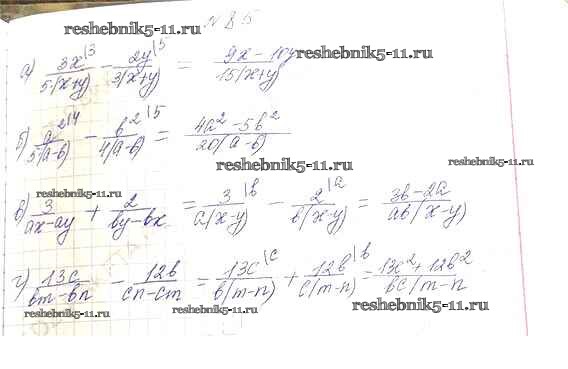 № 85
reshebnik5-11.ru
reshebnik5-11.ru
а) 3x\3 / 5(x+y) − 2y\5 / 3(x+y) = 9x − 10y / 15(x+y)
reshebnik5-11.ru
б) a²\4 / 5(a−b) − b²\5 / 4(a−b) = 4a² − 5b² / 20(a−b)
reshebnik5-11.ru
reshebnik5-11.ru
reshebnik5-11.ru
в) 3 / ax−ay + 2 / by−bx = 3\b / a(x−y) − 2\a / b(x−y) = 3b−2a / ab(x−y)
reshebnik5-11.ru
г) 13c / bm−bn − 12b / cn−cm = 13c\c / b(m−n) + 12b\b / c(m−n) = 13c² + 12b² / bc(m−n
reshebnik5-11.ru
reshebnik5-11.ru
reshebnik5-11.ru